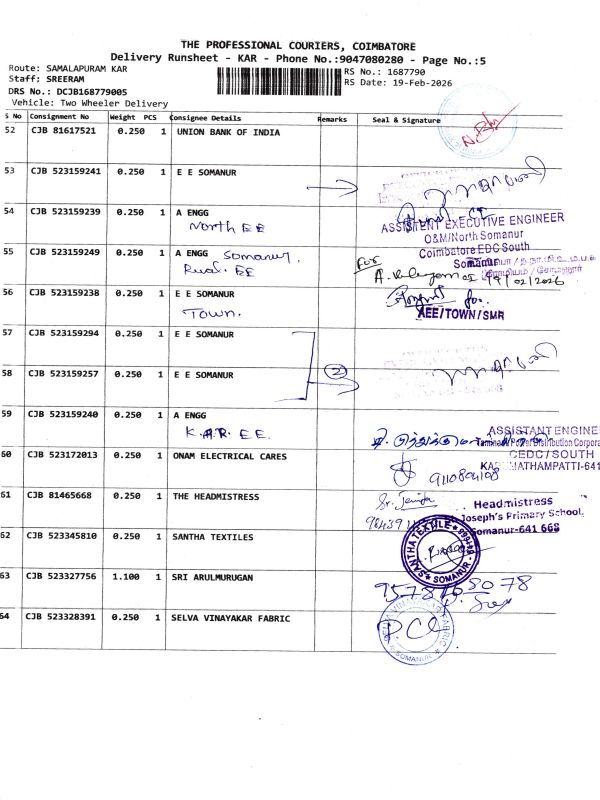 THE PROFESSIONAL COURIERS, COIMBATORE
Delivery Runsheet - KAR - Phone No.:9047080280 - Page No.:5
Route: SAMALAPURAM KAR
Staff: SREERAM
DRS No.: DCJB168779005
Vehicle: Two Wheeler Delivery
RS No.: 1687790
RS Date: 19-Feb-2026
S No Consignment No Weight PCS Consignee Details Remarks Seal & Signature
52 CJB 81617521 0.250 1 UNION BANK OF INDIA
53 CJB 523159241 0.250 1 E E SOMANUR
54 CJB 523159239 0.250 1 A ENGG
North EE
ASSISTENT EXECUTIVE ENGINEER
O&M/North Somanur
Coimbatore EDC South
Somanur
55 CJB 523159249 0.250 1 A ENGG Somanur.
Rural. EE
For
19/02/2026
56 CJB 523159238 0.250 1 E E SOMANUR
Town.
for.
AEE/TOWN/SMR
57 CJB 523159294 0.250 1 E E SOMANUR
2
58 CJB 523159257 0.250 1 E E SOMANUR
59 CJB 523159240 0.250 1 A ENGG
K.A.R. EE.
ASSISTANT ENGINEE
Power Distribution Corpora
CEDC/SOUTH
MATHAMPATTI-641
60 CJB 523172013 0.250 1 ONAM ELECTRICAL CARES
61 CJB 81465668 0.250 1 THE HEADMISTRESS
Sr.
Headmistress
Joseph's Primary School,
Somanur-641 668
62 CJB 523345810 0.250 1 SANTHA TEXTILES
SANTHA TEXTILE
SOMANUR
63 CJB 523327756 1.100 1 SRI ARULMURUGAN
64 CJB 523328391 0.250 1 SELVA VINAYAKAR FABRIC
SOMANUR